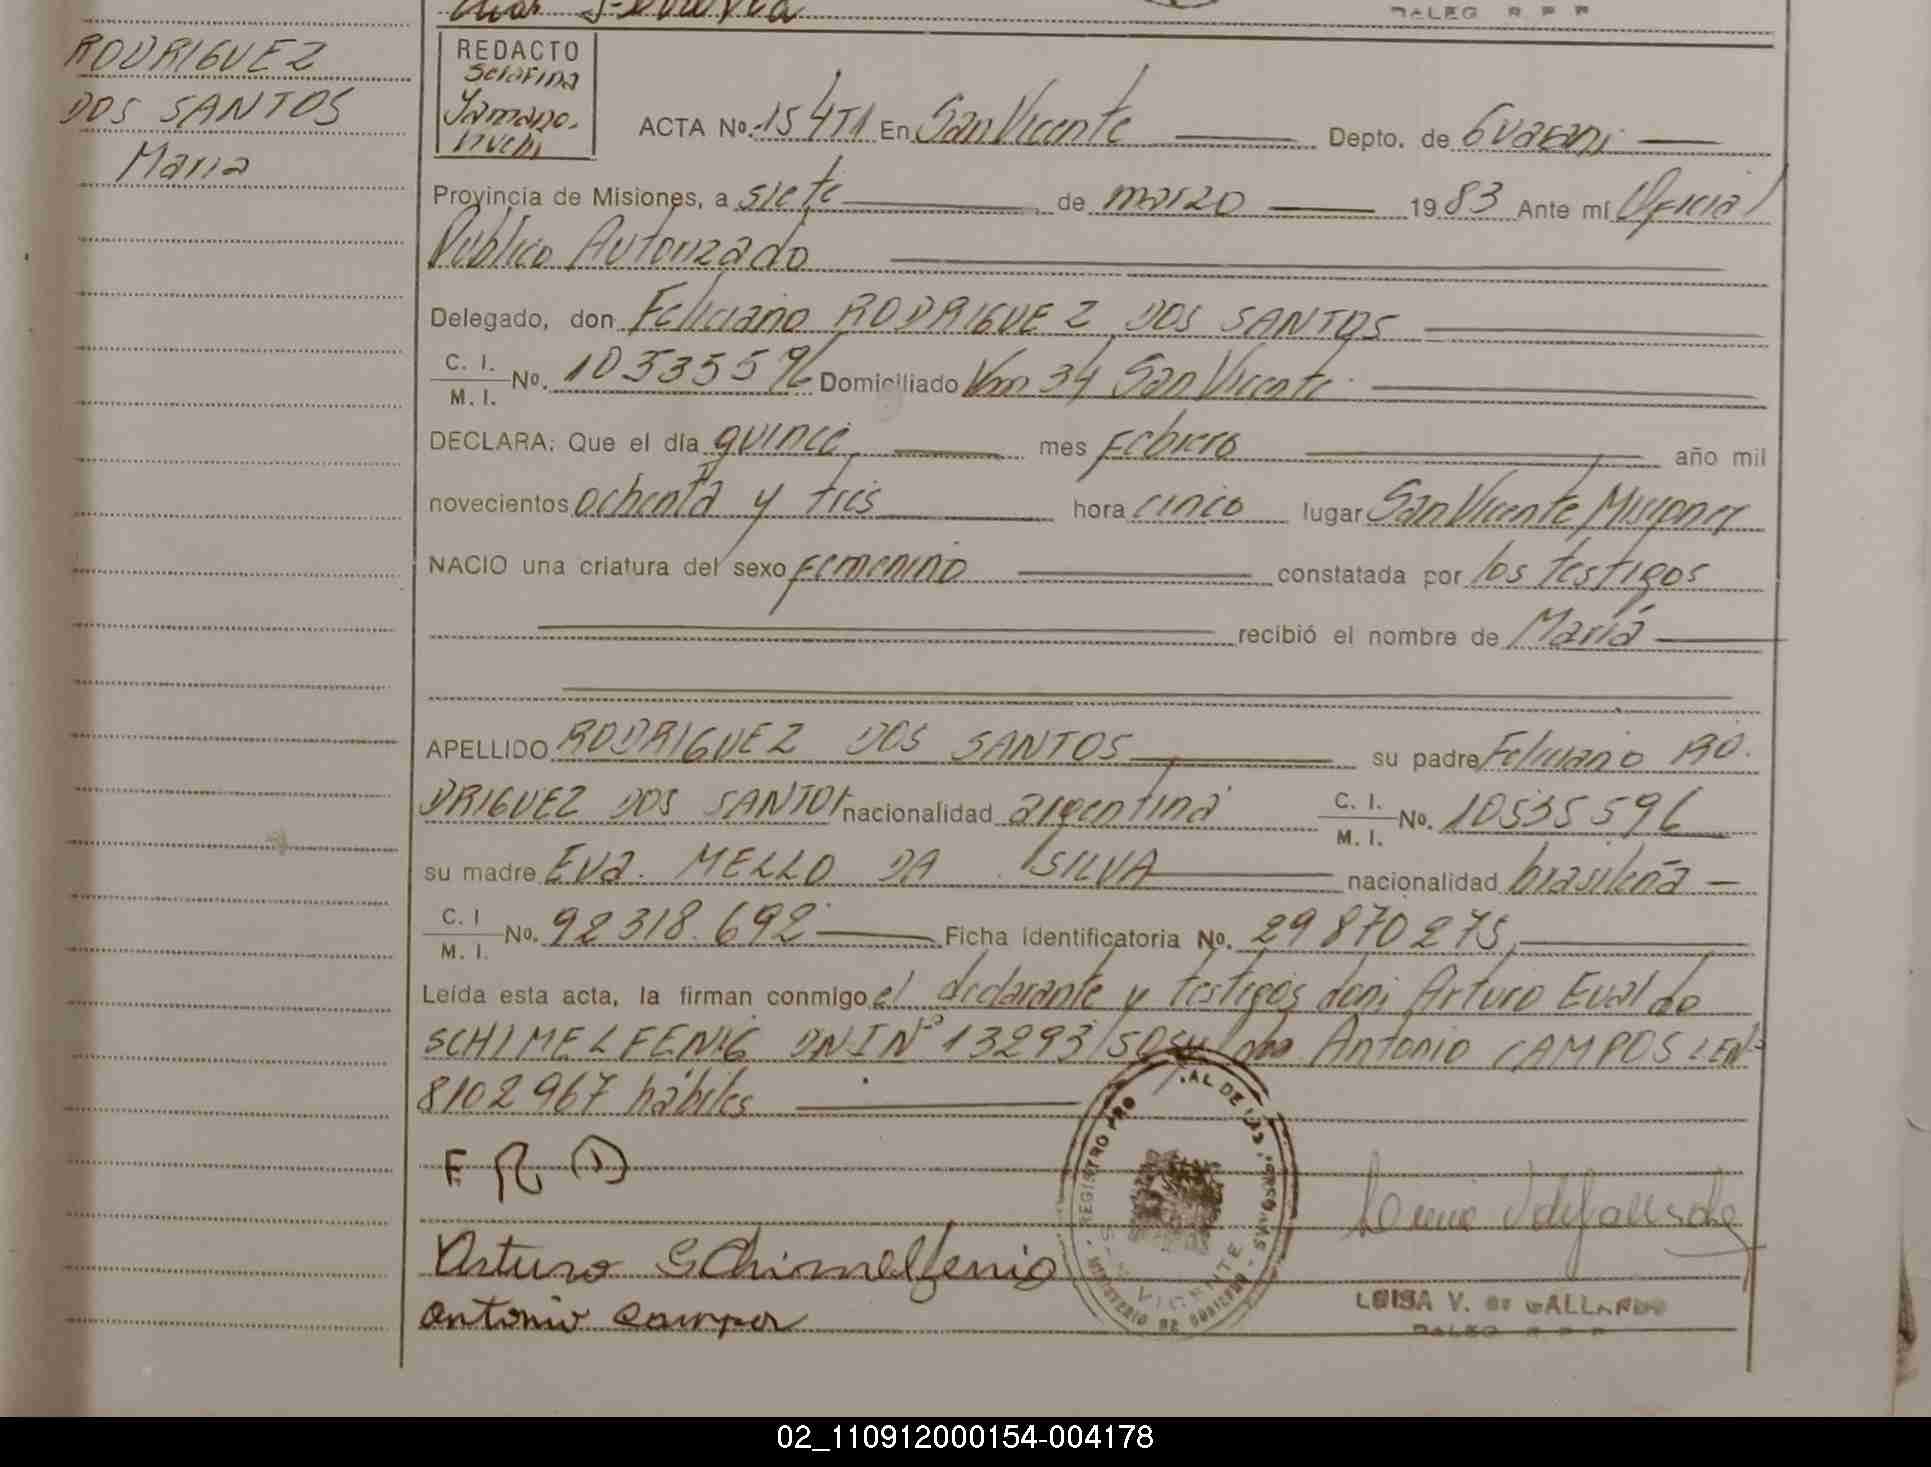 DALEG R P P
RODRIGUEZ
DOS SANTOS
Maria
REDACTO
Serafina
Yamano.
ACTA No. 154 T1 En San Vicente Depto. de Guarani
Provincia de Misiones, a siete de marzo 1983 Ante mí Oficial
Publico Autorizado
Delegado, don Feliciano RODRIGUEZ DOS SANTOS
C. I.
M. I. No. 10535596 Domiciliado Km 34 San Vicente
DECLARA: Que el día quince mes febrero año mil
novecientos ochenta y tres hora cinco lugar San Vicente Misiones
NACIO una criatura del sexo femenino constatada por los testigos
recibió el nombre de María
APELLIDO RODRIGUEZ DOS SANTOS su padre Feliciano RO.
DRIGUEZ DOS SANTOS nacionalidad argentina C. I.
M. I. No. 10535596
su madre Eva. MELLO DA SILVA nacionalidad brasileña
C. I
M. I. No. 92318.692 Ficha Identificatoria No. 29870275
Leída esta acta, la firman conmigo el declarante y testigos don: Arturo Evaldo
SCHIMELFENIG DNI Nº 13293 Antonio CAMPOS LE Nº
8102967 hábiles
F R D
Arturo Schimelfenig
Antonio Campos
REGISTRO PRO AL DE LAS PERSONAS - MINISTERIO DE GOBIERNO
VICENTE
LUISA V. DE GALLARDO
DALEG R P P
02_110912000154-004178